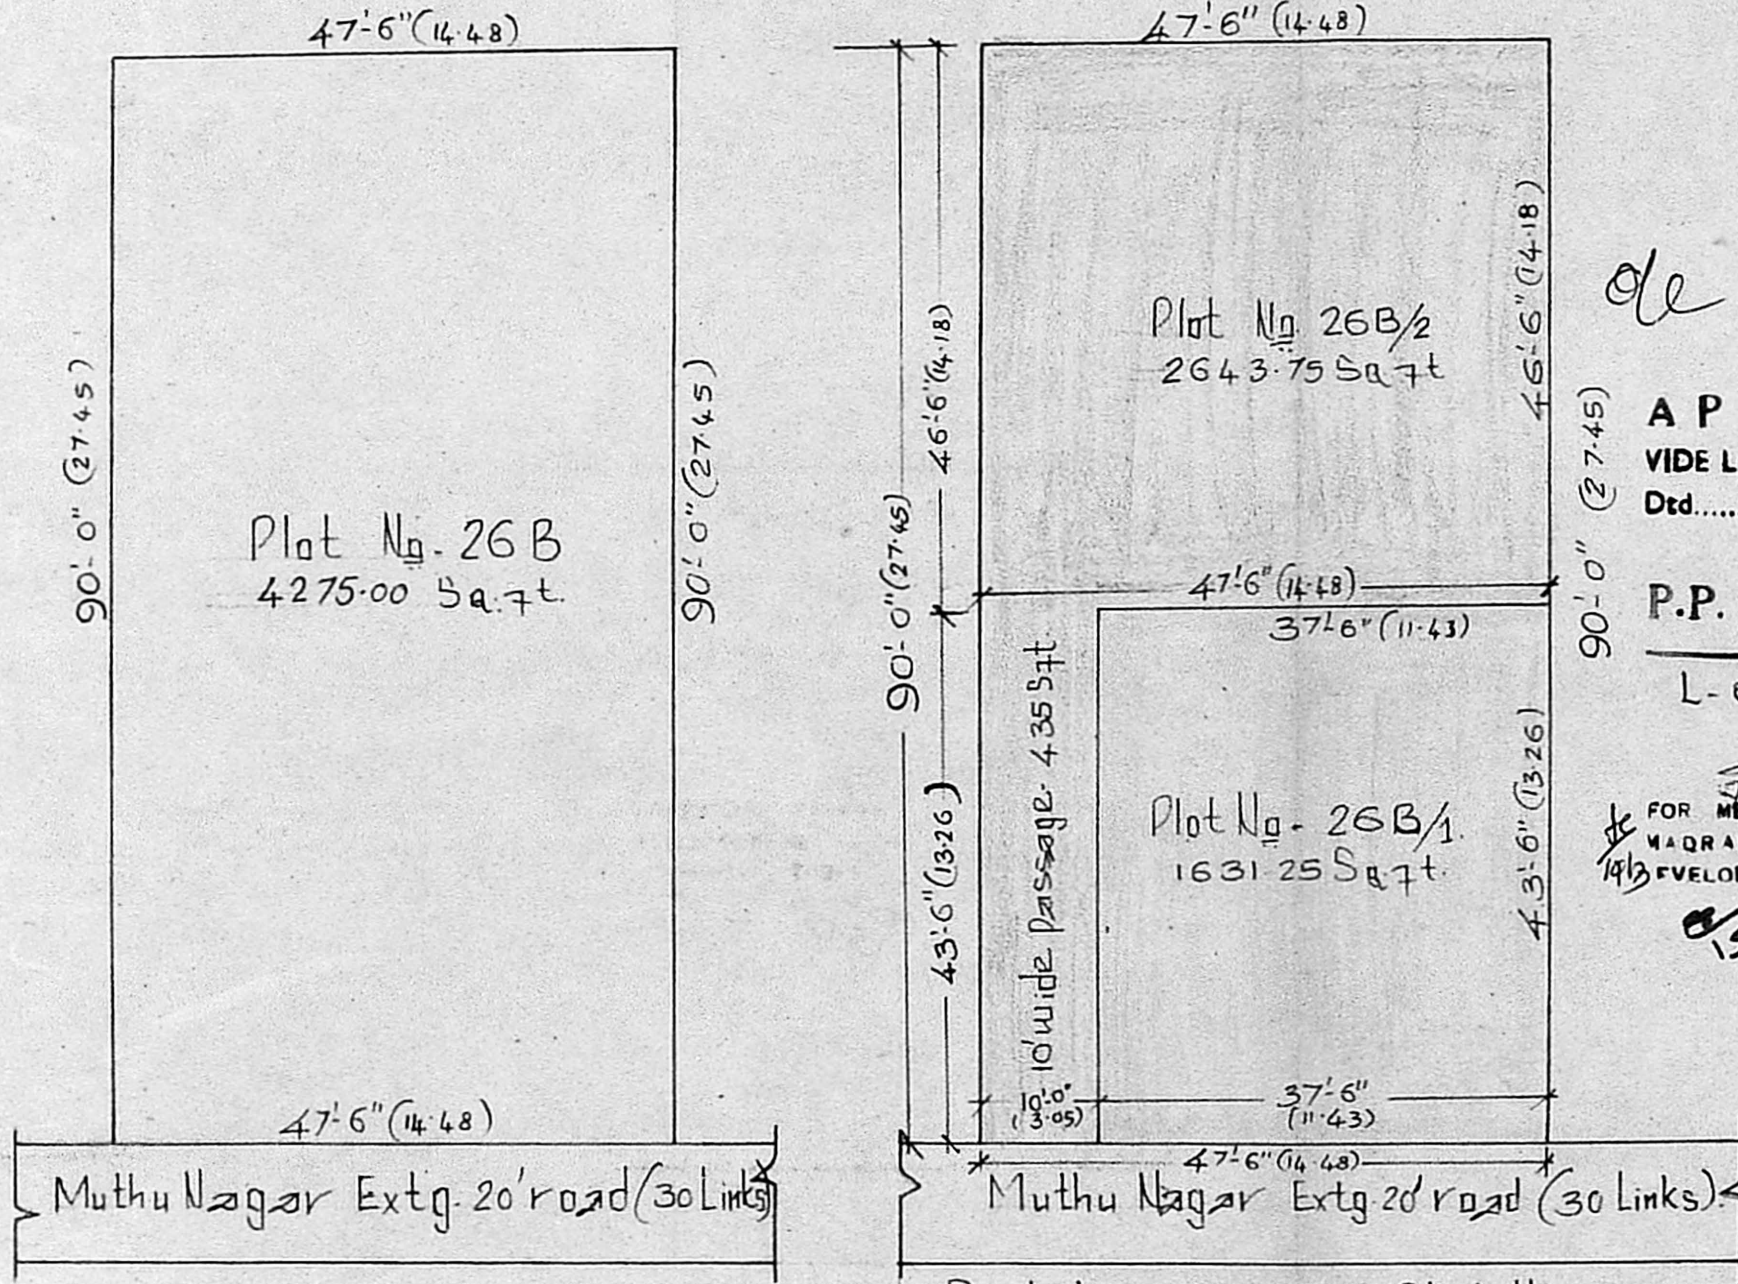 47'-6"(14.48)
90'-0" (27.45)
Plot No. 26B
4275.00 Sq.ft.
90'-0"(27.45)
47'-6"(14.48)
Muthu Nagar Extg. 20' road (30 Links)
47'-6" (14.48)
90'-0"(27.45)
46'-6"(14.18)
43'-6"(13.26)
Plot No. 26B/2
2643.75 Sq ft
46'-6" (14.18)
90'-0" (27.45)
47'-6" (14.48)
37'-6" (11.43)
10' wide Passage. 435 Sft.
Plot No- 26B/1.
1631.25 Sq ft.
43'-6" (13.26)
10'-0"
(3.05)
37'-6"
(11.43)
47'-6"(14.48)
Muthu Nagar Extg. 20' road (30 Links).
A P
VIDE L
Dtd.....
P.P.
L-
FOR
MADRA
EVELO